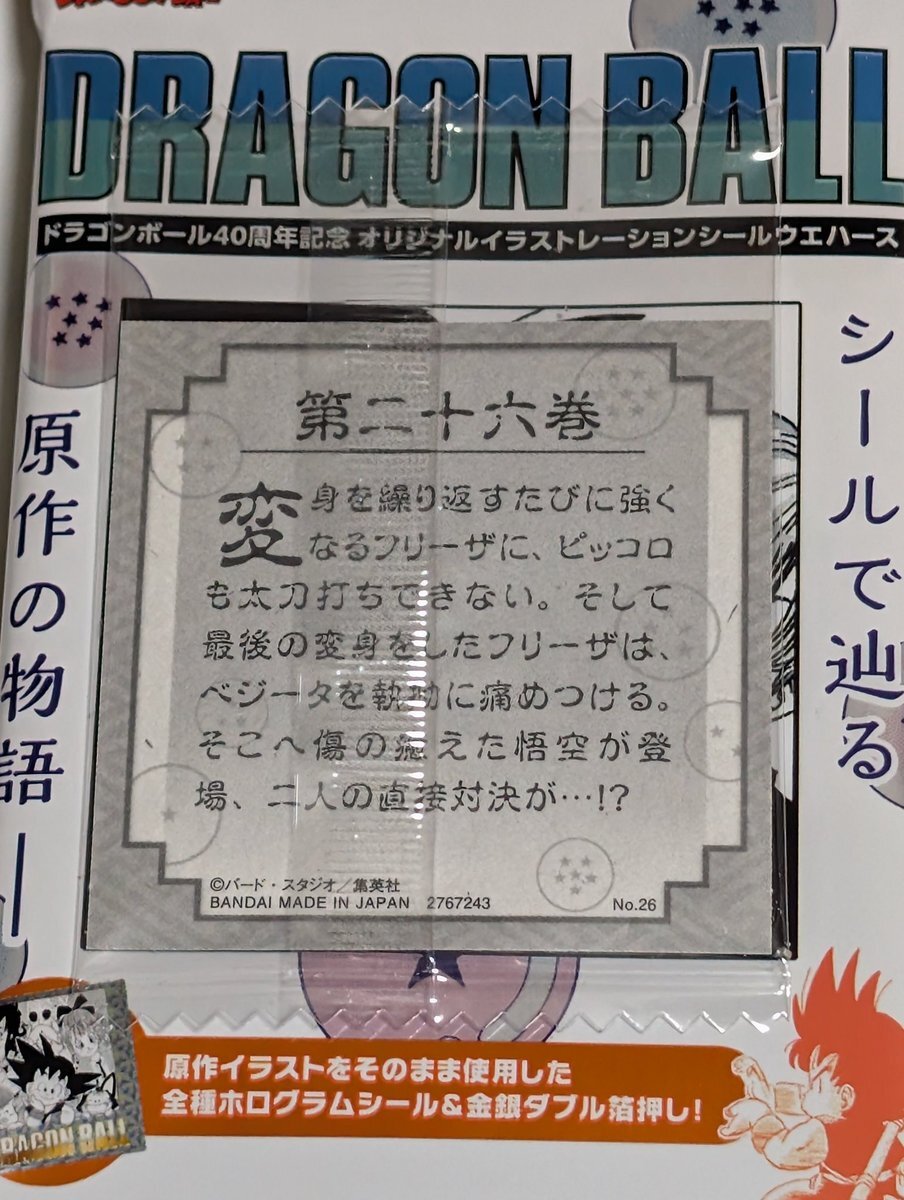 DRAGON BALL
ドラゴンボール40周年記念 オリジナルイラストレーションシールウエハース
シールで辿る
原作の物語――
第二十六巻
変身を繰り返すたびに強く
なるフリーザに、ピッコロ
も太刀打ちできない。そして
最後の変身をしたフリーザは、
ベジータを執拗に痛めつける。
そこへ傷の癒えた悟空が登
場、二人の直接対決が…!?
©バード・スタジオ／集英社
BANDAI MADE IN JAPAN 2767243
No.26
原作イラストをそのまま使用した
全種ホログラムシール&金銀ダブル箔押し!
DRAGON BALL